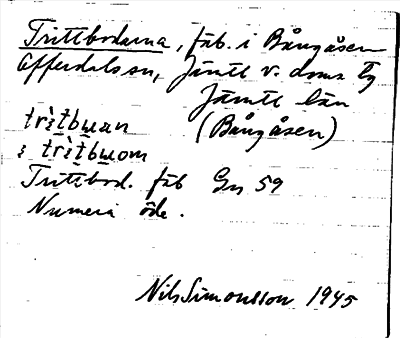 Trittbodarna, fäb. i Bångåsen
Offerdals sn, Jämtl. v. doms tg
Jämtl. län
(Bångåsen)
trìtbuan
i trìtbuom
Trittbod. fäb Gn 59
Numera öde.
Nils Simonsson 1945